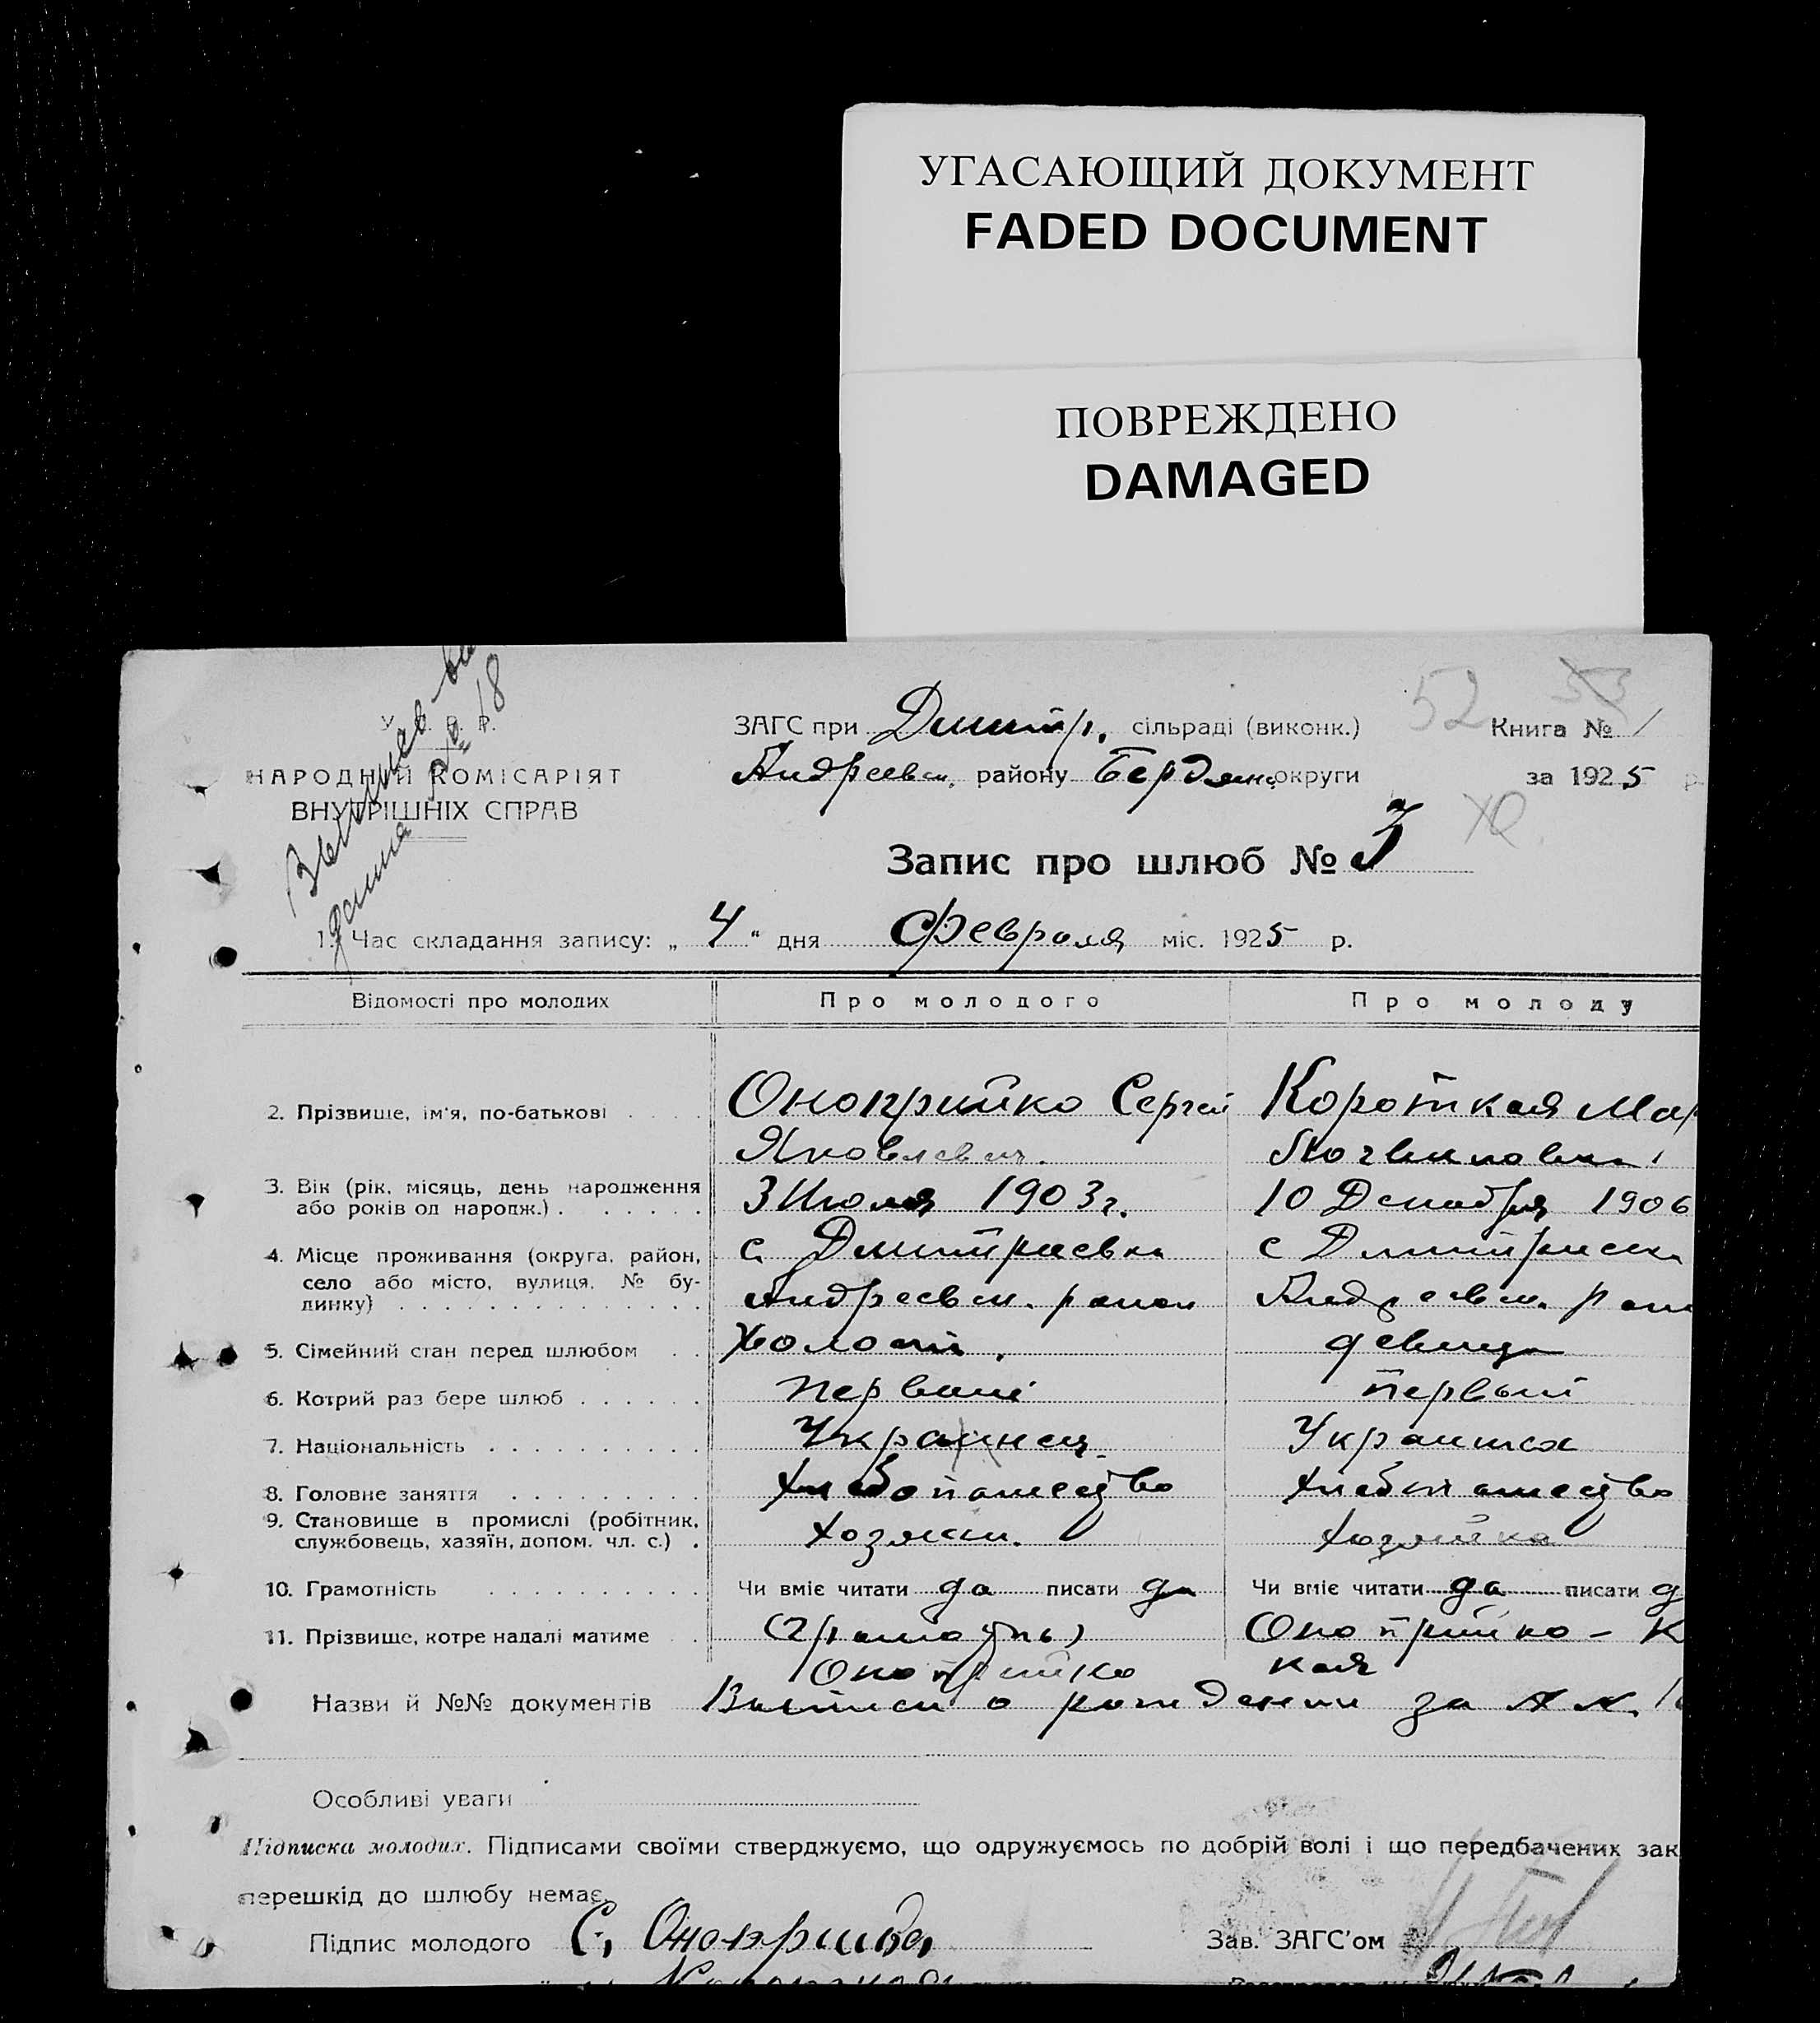 УГАСАЮЩИЙ ДОКУМЕНТ
FADED DOCUMENT
ПОВРЕЖДЕНО
DAMAGED
52 53
У. С. Р. Р.
НАРОДНІЙ КОМІСАРІЯТ
ВНУТРІШНІХ СПРАВ
№ 18
ЗАГС при Дмитр. сільраді (виконк.) Книга № 1
Андреевск. району Бердянс. округи за 1925 р.
Запис про шлюб № 3
1. Час складання запису: „ 4 “ дня Февраля міс. 1925 р.
Відомості про молодих Про молодого Про молоду
2. Прізвище, ім'я, по-батькові Оноприйко Сергей Короткая Мар
Яковлевич.
3. Вік (рік, місяць, день народження або років од народж.) 3 Июля 1903 г. 10 Декабря 1906
4. Місце проживання (округа, район, село або місто, вулиця, № будинку) с. Дмитриевка с Дмитриевка
Андреевск. район Андреевск. рай
5. Сімейний стан перед шлюбом Холост. девица
6. Котрий раз бере шлюб первый первый
7. Національність Украинец Украинка
8. Головне заняття Хлебопашество Хлебопашество
9. Становище в промислі (робітник, службовець, хазяїн, допом. чл. с.) Хозяин. Хозяйка
10. Грамотність Чи вміє читати да писати да Чи вміє читати да писати д
11. Прізвище, котре надалі матиме Оноприйко – К
Оноприйко кая
Назви й №№ документів Выписи о рождении за №№
Особливі уваги
Підписка молодих. Підписами своїми стверджуємо, що одружуємось по добрій волі і що передбачених зак
перешкід до шлюбу немає.
Підпис молодого С. Оноприйко Зав. ЗАГС'ом